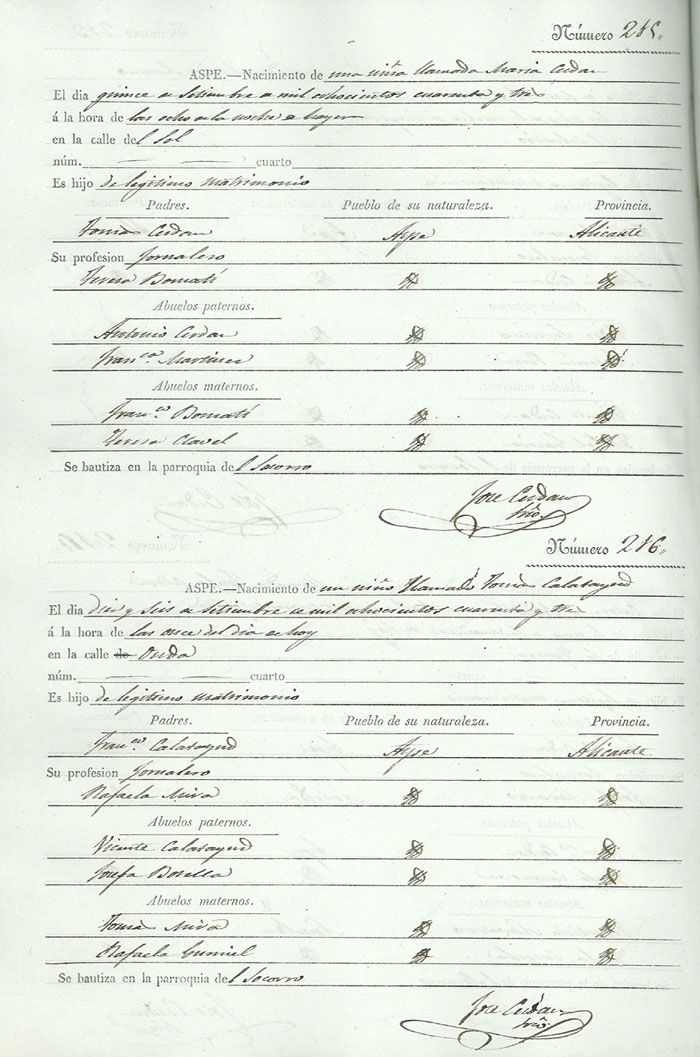 Número 215.
ASPE.—Nacimiento de una niña llamada Maria Cerdan
El dia quince de Setiembre de mil ochocientos cuarenta y tres
á la hora de las ocho de la noche de hayer
en la calle del Sol
núm. cuarto
Es hijo de legitimo matrimonio
Padres. Pueblo de su naturaleza. Provincia.
Tomas Cerdan Aspe Alicante
Su profesion Jornalero
Teresa Bomatí
Abuelos paternos.
Antonio Cerdan
Franca. Martinez
Abuelos maternos.
Franco. Bomatí
Teresa Clavel
Se bautiza en la parroquia del Socorro
Jose Cerdan
Srio.
Número 216.
ASPE.—Nacimiento de un niño llamado Tomas Calatayud
El dia diez y seis de Setiembre de mil ochocientos cuarenta y tres
á la hora de las once del dia de hoy
en la calle de Onda
núm. cuarto
Es hijo de legitimo matrimonio
Padres. Pueblo de su naturaleza. Provincia.
Franco. Calatayud Aspe Alicante
Su profesion Jornalero
Rafaela Mira
Abuelos paternos.
Vicente Calatayud
Josefa Botella
Abuelos maternos.
Tomas Mira
Rafaela Gumiel
Se bautiza en la parroquia del Socorro
Jose Cerdan
Srio.